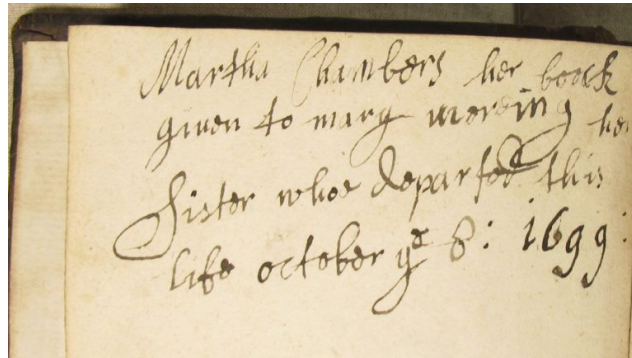 Martha Chambers her boock
given to mary mereing her
Sister whoe departed this
life october ye 8: 1699: